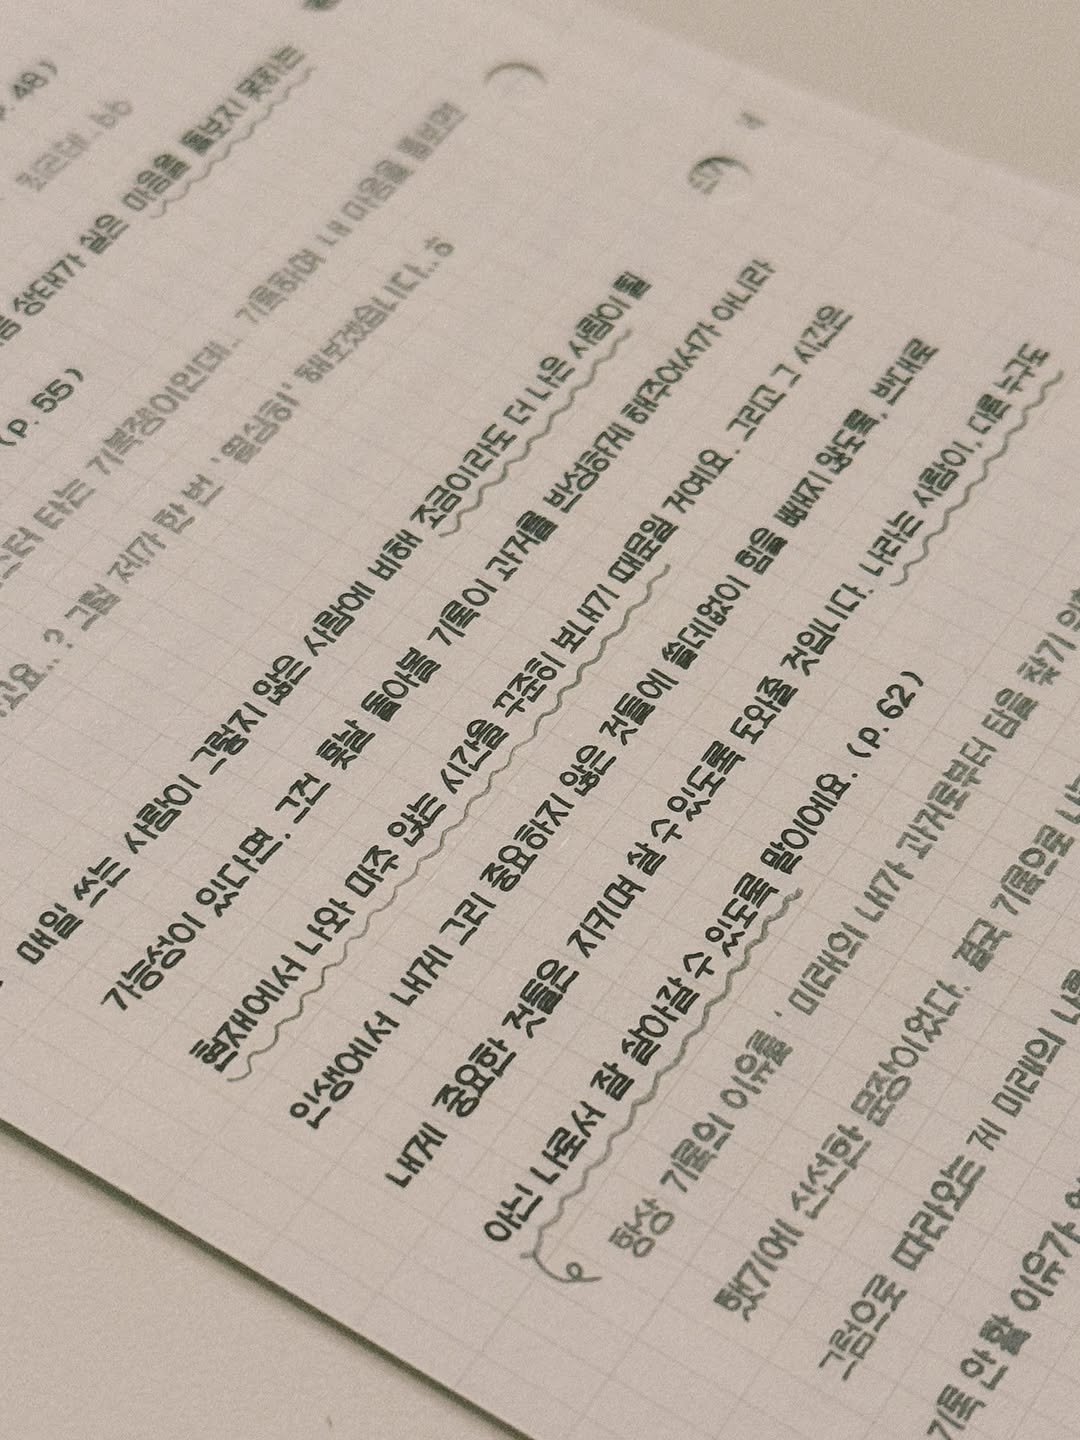 p. 48)
컷은데..bb
상태가 실은 마음을 돌보지 못하는
(p. 55)
타는 기복쟁이인데.. 기록하며 내 마음을 돌보면
? 그럼 제가 한 번 '열심히' 해보겠습니다..ㅎ
매일 쓰는 사람이 그렇지 않은 사람에 비해 조금이라도 더 나은 사람이 될
가능성이 있다면, 그건 훗날 돌아볼 기록이 과거를 반성하게 해주어서가 아니라
현재에서 나와 마주 앉는 시간을 꾸준히 보내기 때문일 거예요. 그리고 그 시간은
인생에서 내게 그리 중요하지 않은 것들에 쓸데없이 힘을 빼앗기지 않도록, 반대로
내게 중요한 것들은 지키며 살 수 있도록 도와줄 것입니다. 나라는 사람이, 다른 누구도
아닌 나로서 잘 살아갈 수 있도록 말이에요. (p. 62)
항상 기록의 이유를 '미래의 내가 과거로부터 답을 찾기
했기에 신선한 문장이었다. 결국 기록으로
그럼으로 따라오는 게 미래의
기록 안 할 이유가